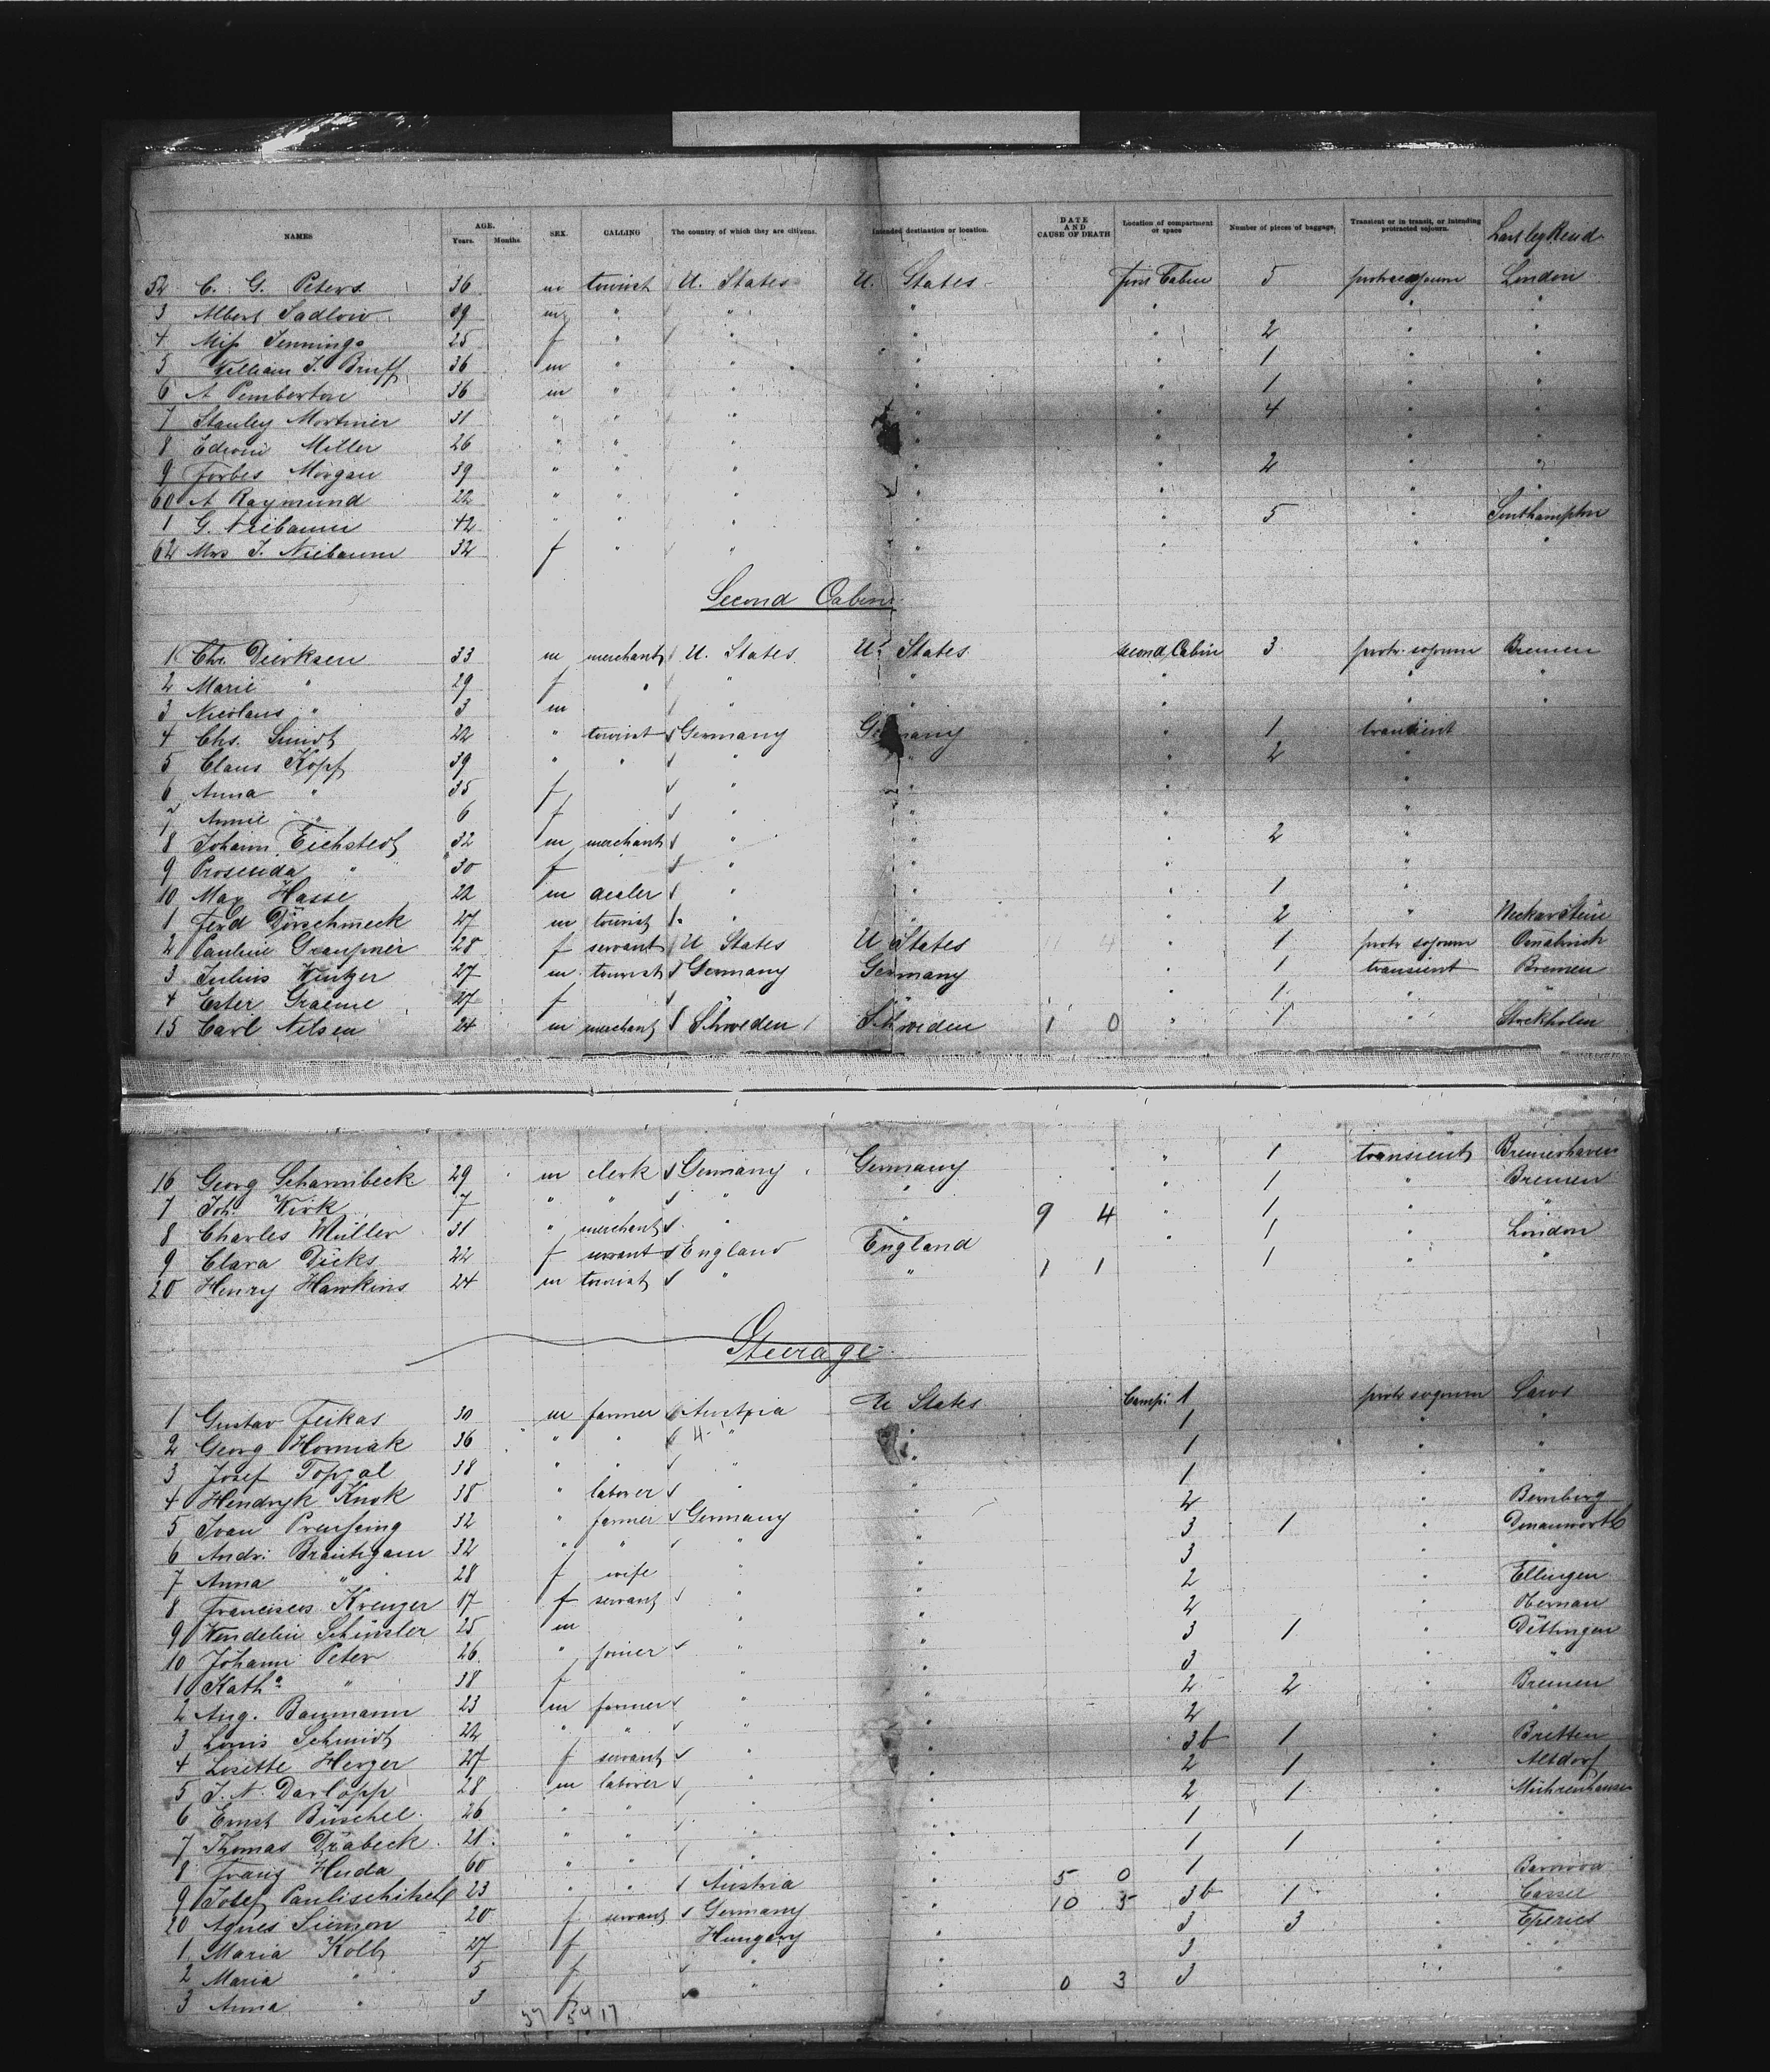 NAMES AGE. Years. Months. SEX. CALLING The country of which they are citizens. Intended destination or location. DATE AND CAUSE OF DEATH Location of compartment or space Number of pieces of baggage. Transient or in transit, or intending protracted sojourn. Last leg Resid
52 C. G. Peters 36 m tourist U. States U. States First Cabin 5 London
3 Albert Sadlow 39 m " " " " " "
4 Miss Jennings 25 f " " " " 2 " "
5 William J. Bruff 36 m " " " " 1 " "
6 A Pemberton 36 m " " " " 1 " "
7 Stanley Mortimer 31 " " " " " 4 " "
8 Edwin Miller 26 " " " " " "
9 Forbes Morgan 39 " " " " " 2 " "
60 A Raymund 22 " " " " " "
1 G. Niebaum 42 " " " " " 5 " Southampton
62 Mrs J. Niebaum 32 f " " " " " "
Second Cabin
1 Chr. Dierksen 33 m merchant U. States U. States second Cabin 3 protr. sojourn Bremen
2 Marie " 29 f " " " " " "
3 Nicolaus " 3 m " " " " "
4 Chs. Smidt 22 " tourist Germany Germany " 1 transient
5 Claus Kopf 39 " " " " " 2 "
6 Anna " 35 f " " " "
7 Annie " 6 f " " " "
8 Johann Eichstedt 32 m merchant " " " 2 "
9 Prosenda " 30 f " " " "
10 Max Hasse 22 m dealer " " " 1 "
1 Ferd Dörschmeck 27 m tourist " " " 2 " Neckarstein
2 Pauline Graupner 28 f servant U States U States " 1 protr sojourn Osnabrück
3 Julius Wintzer 27 m tourist Germany Germany " 1 transient Bremen
4 Ester Graeme 27 f " " " 1 " "
15 Carl Nilsen 24 m merchant Schweden Schweden 1 0 " 1 " Stockholm
16 Georg Scharmbeck 29 m clerk Germany Germany " 1 transient Bremerhaven
7 Joh. Wirk 7 " " " " " 1 " Bremen
8 Charles Müller 31 " merchant " " 9 4 " 1 " "
9 Clara Dicks 22 f servant England England " 1 " London
20 Henry Hawkins 24 m tourist " " 1 1 1 " "
Steerage
1 Gustav Feikas 30 m farmer Austria U States Comp: 1 protr sojourn Saros
2 Georg Horniak 36 " " " " 1 " "
3 Josef Topzal 38 " " " " 1 " "
4 Hendryk Knok 38 " laborer " " 1 " "
5 Ivan 32 " farmer Germany " 2 " Bernberg
6 Andr: Bräutigam 32 " " " " 3 1 " Donauworth
7 Anna " 28 f wife " " 3 " "
8 Francisca Kreuzer 17 f servant " " 2 " Ellingen
9 Wendelin Schinsler 25 m " " 2 " Obernau
10 Johann Peter 26 " joiner " " 3 1 " Dettingen
1 Katha " 38 f " " 3 " "
2 Aug. Baumann 23 m farmer " " 2 2 " Bremen
3 Louis Schmidt 22 " " " " 2 " "
4 Lisette Herzer 27 f servant " " 3b 1 " Bretten
5 J. N. Darlapp 28 m laborer " " 2 1 " Altdorf
6 Ernst Büschel 26 " " " " 2 1 " Mührenhausen
7 Thomas Drabeck 21 " " " " 1 " "
8 Franz Huda 60 " " " " 1 1 " "
9 Josef Paulischitsch 23 " " Austria " 5 0 1 "
20 Agnes Siemon 20 f servant Germany " 10 5 3b 1 " Cassel
1 Maria Kolb 27 f Hungary " 3 3 " Eperies
2 Maria " 5 f " " 3 " "
3 Anna " 3 f " " 0 3 3 " "
37 5417